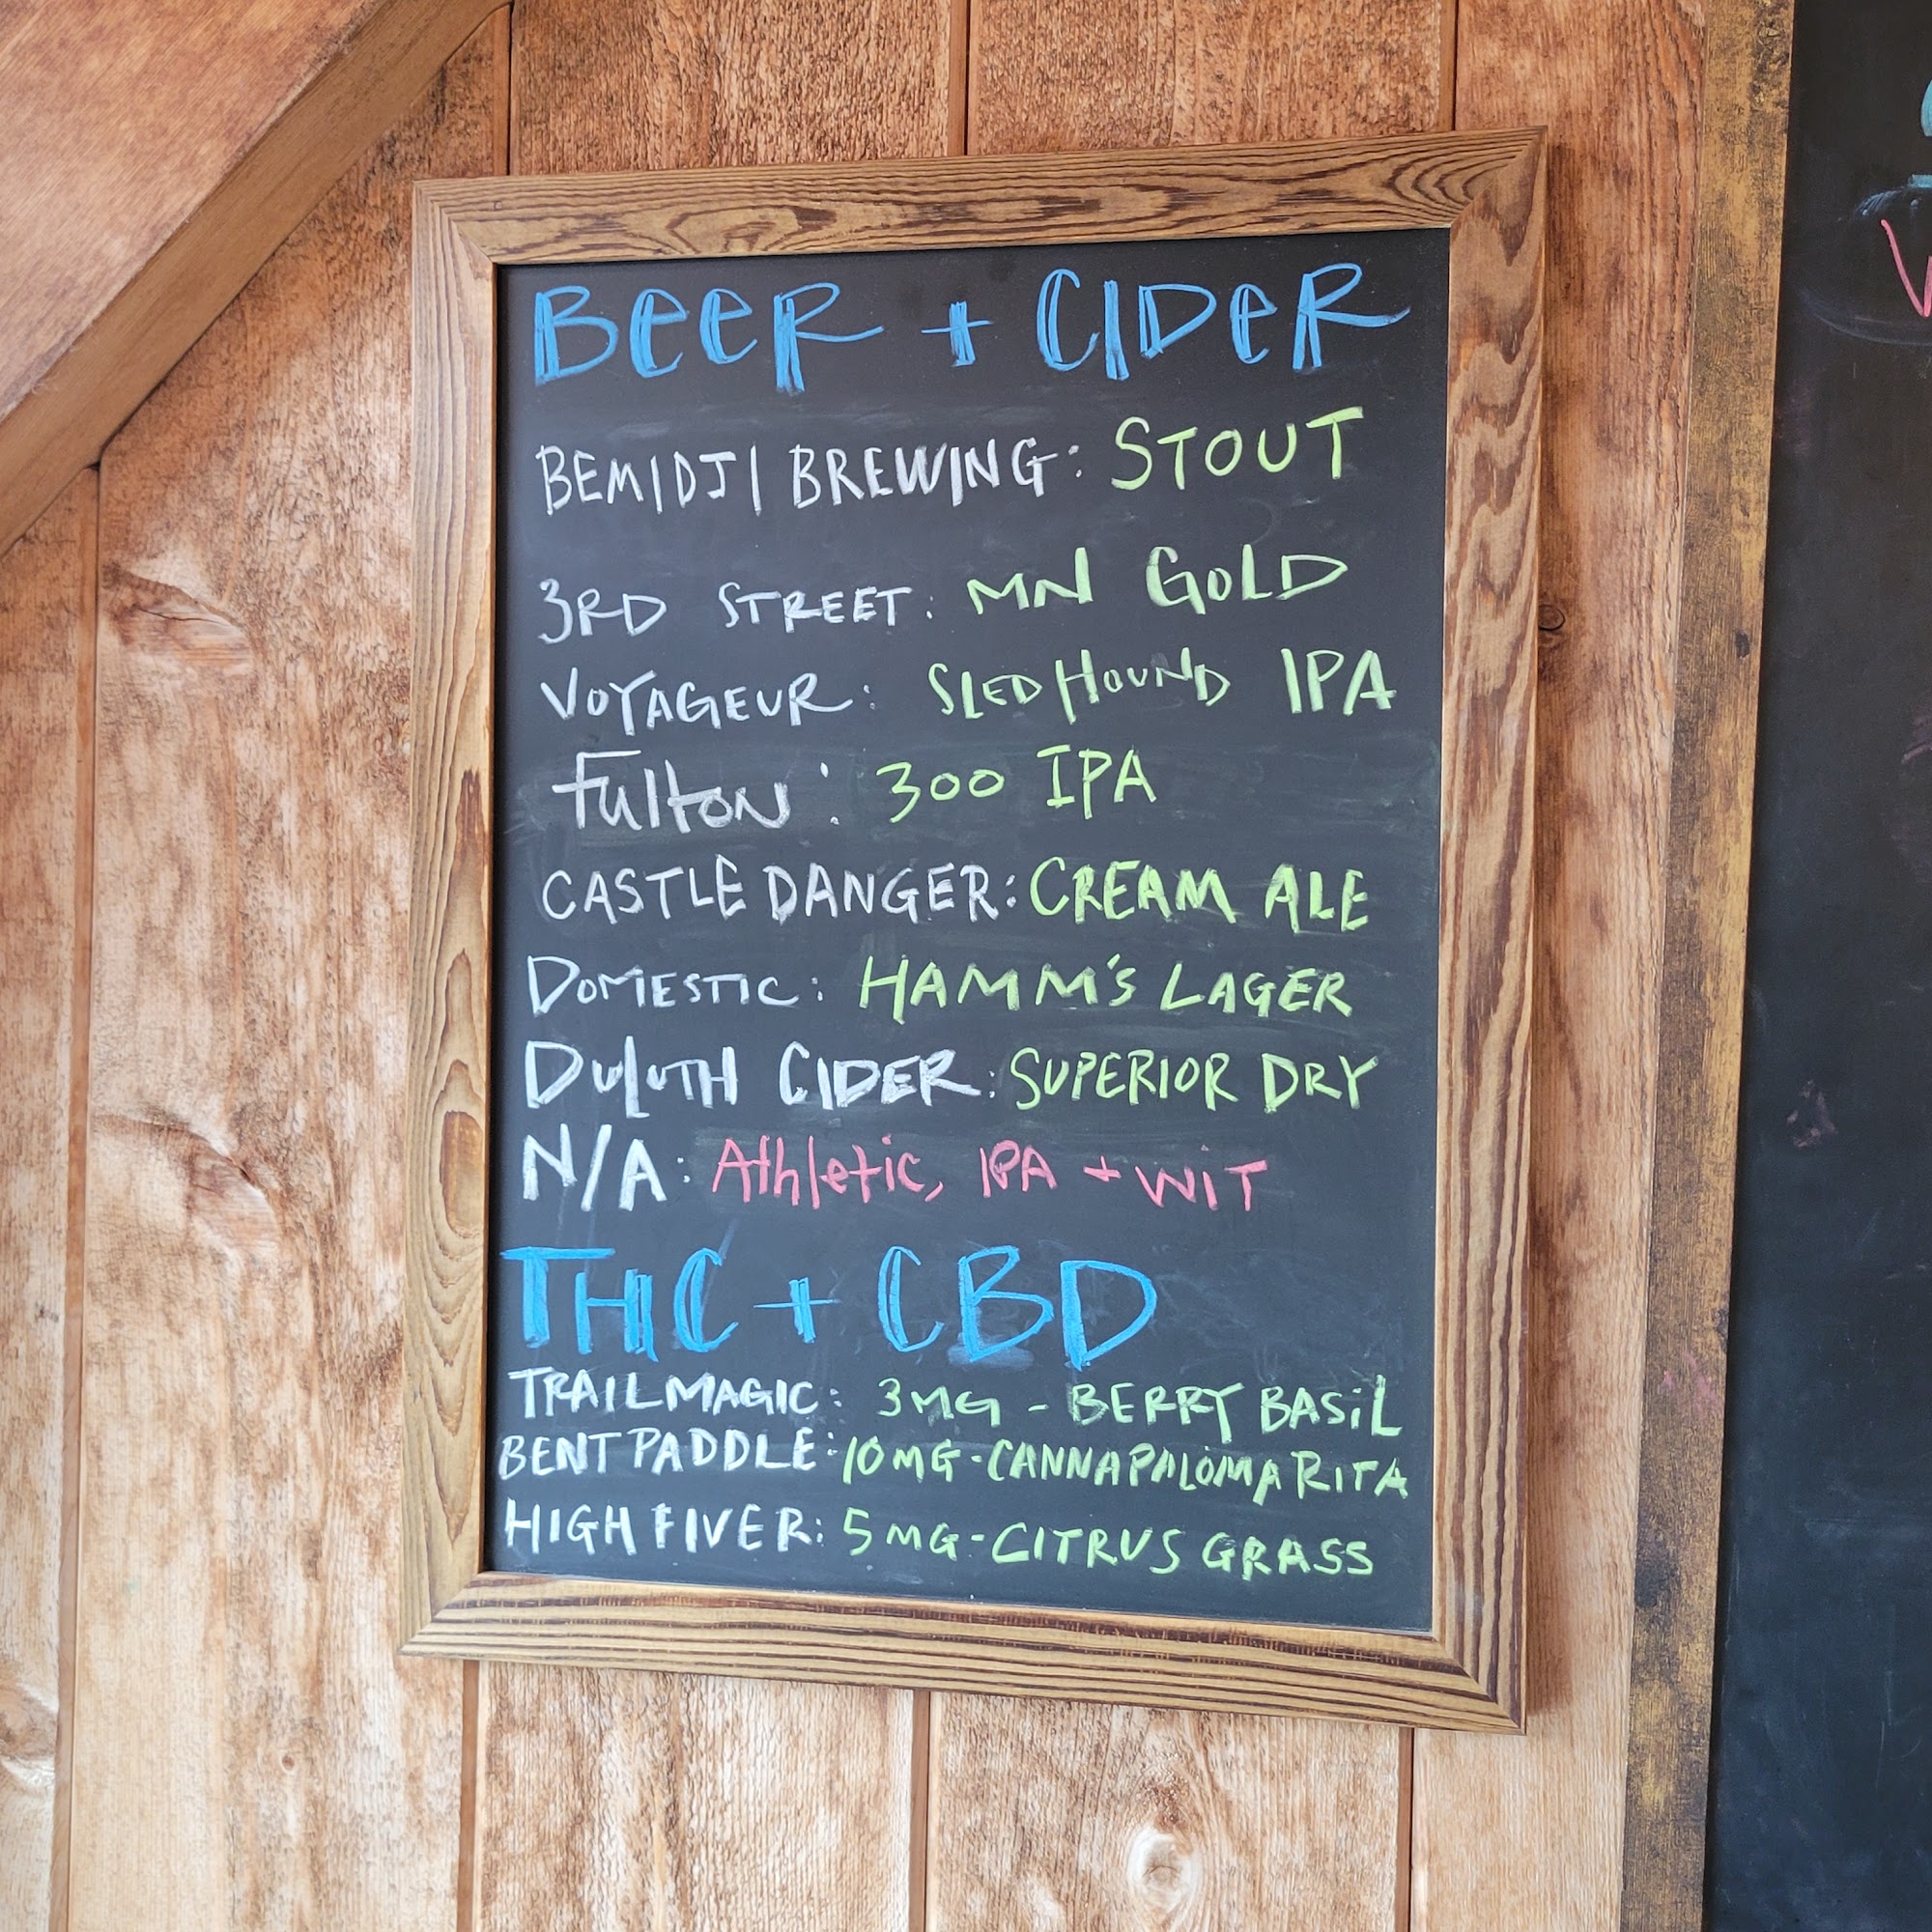 BEER + CIDER
BEMIDJI BREWING: STOUT
3RD STREET: MN GOLD
VOYAGEUR: SLED HOUND IPA
Fulton: 300 IPA
CASTLE DANGER: CREAM ALE
DOMESTIC: HAMM'S LAGER
DULUTH CIDER: SUPERIOR DRY
N/A: Athletic, IPA + WIT
THC + CBD
TRAIL MAGIC: 3MG - BERRY BASIL
BENT PADDLE: 10MG - CANNAPALOMA RITA
HIGH FIVER: 5MG - CITRUS GRASS